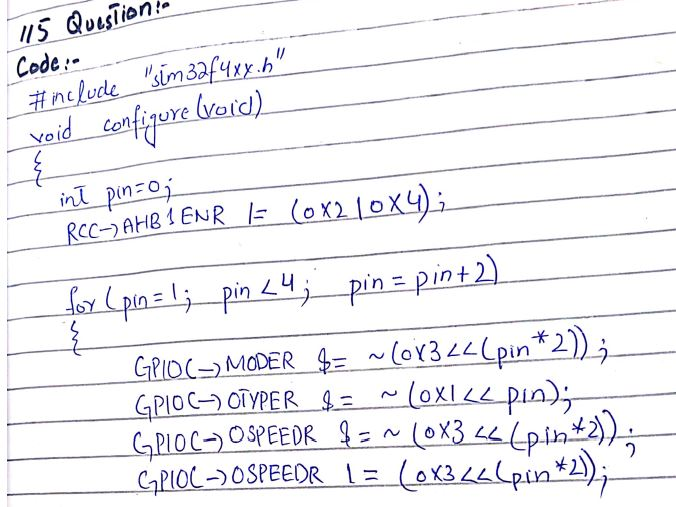 115 Question:-
Code:-
#include "stm32f4xx.h"
void configure(void)
{
int pin=0;
RCC->AHB1ENR |= (0x2|0x4);
for(pin=1; pin<4; pin=pin+2)
{
GPIOC->MODER &= ~(0x3<<(pin*2));
GPIOC->OTYPER &= ~(0x1<<pin);
GPIOC->OSPEEDR &= ~(0x3<<(pin*2));
GPIOC->OSPEEDR |= (0x3<<(pin*2));